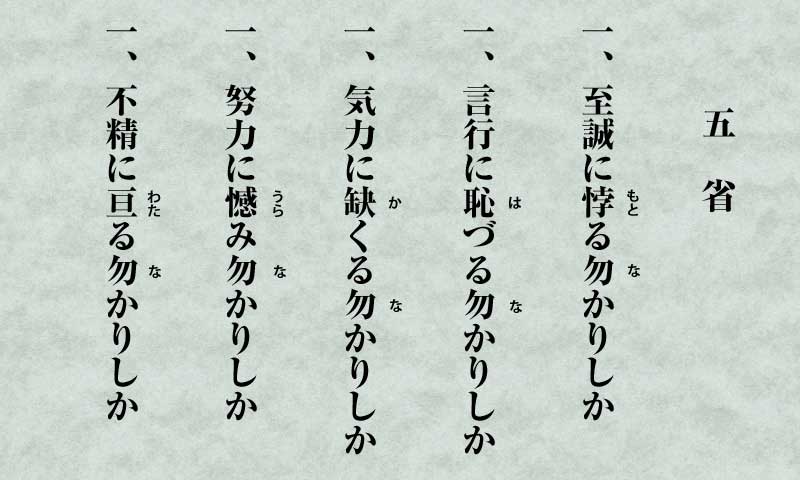 五省
一、至誠に悖る勿かりしか
もと
な
一、言行に恥づる勿かりしか
は
な
一、気力に缺くる勿かりしか
か
な
一、努力に憾み勿かりしか
うら
な
一、不精に亘る勿かりしか
わた
な